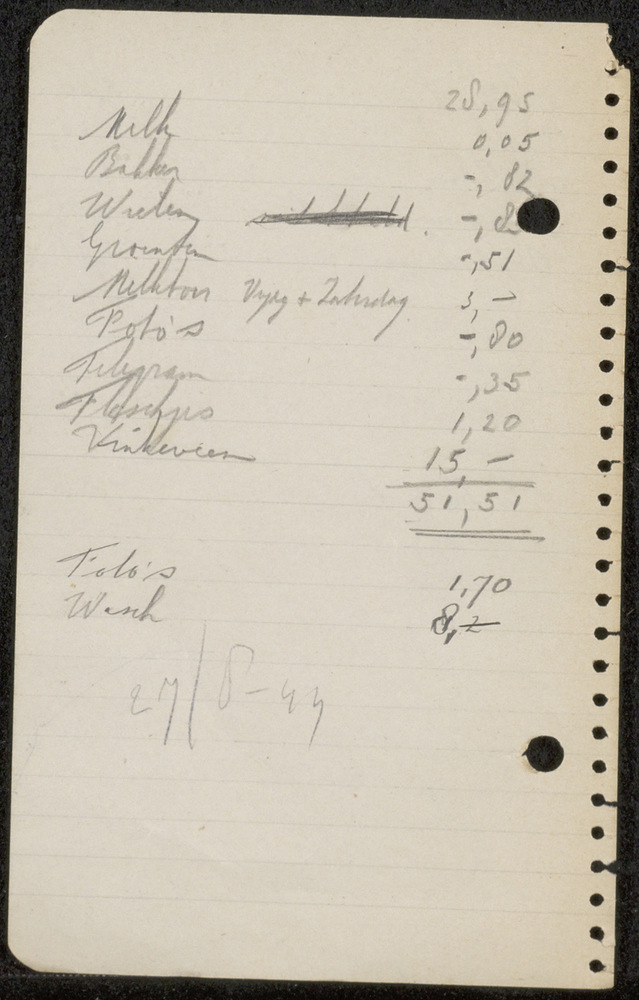 28,95
Melk 0,05
Bakker -,82
Wieten -,8
Groenten -,51
Melkboer Vrijdag + Zaterdag 3,-
Foto's -,80
Telegram -,35
Flesschjes 1,20
Vinkeveen 15,-
51,51
Foto's 1,70
Wasch 8,2
27/8-44